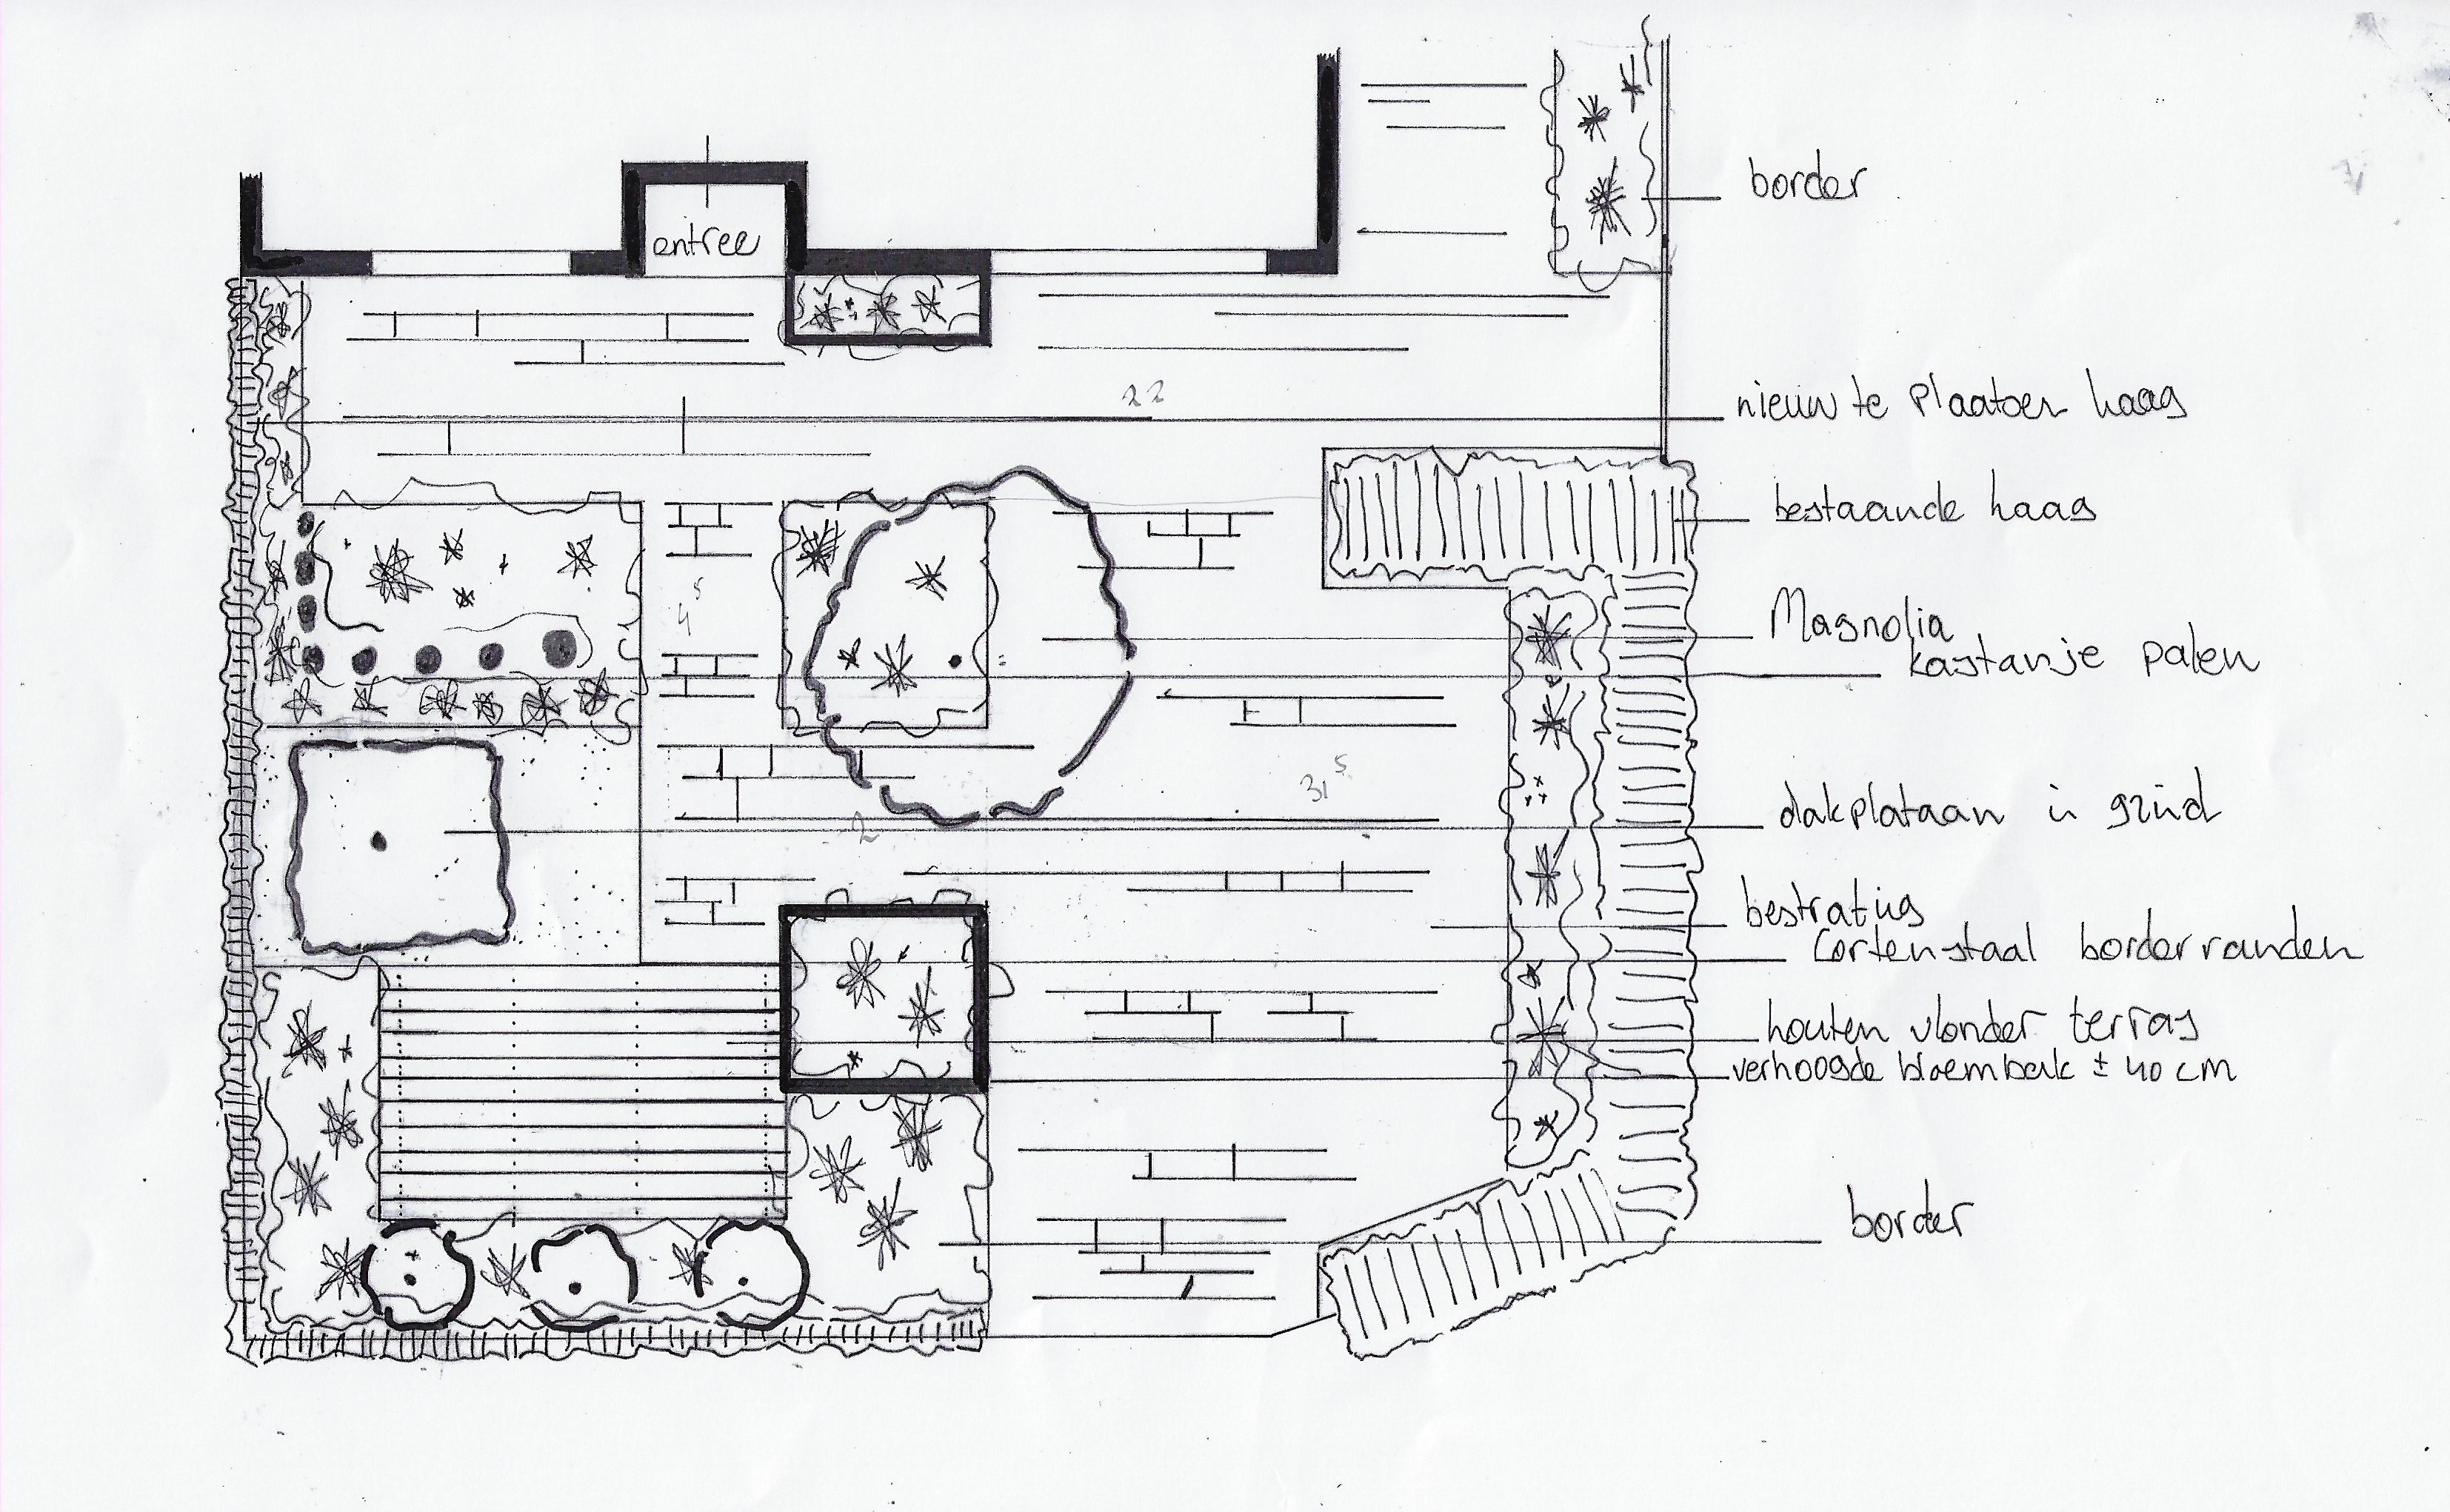 entree
border
22
nieuw te plaatsen haag
bestaande haag
Magnolia
kastanje palen
4⁵
dakplataan in grind
31⁵
2
bestrating
Cortenstaal borderranden
houten vlonder terras
verhoogde bloembak ± 40 cm
border